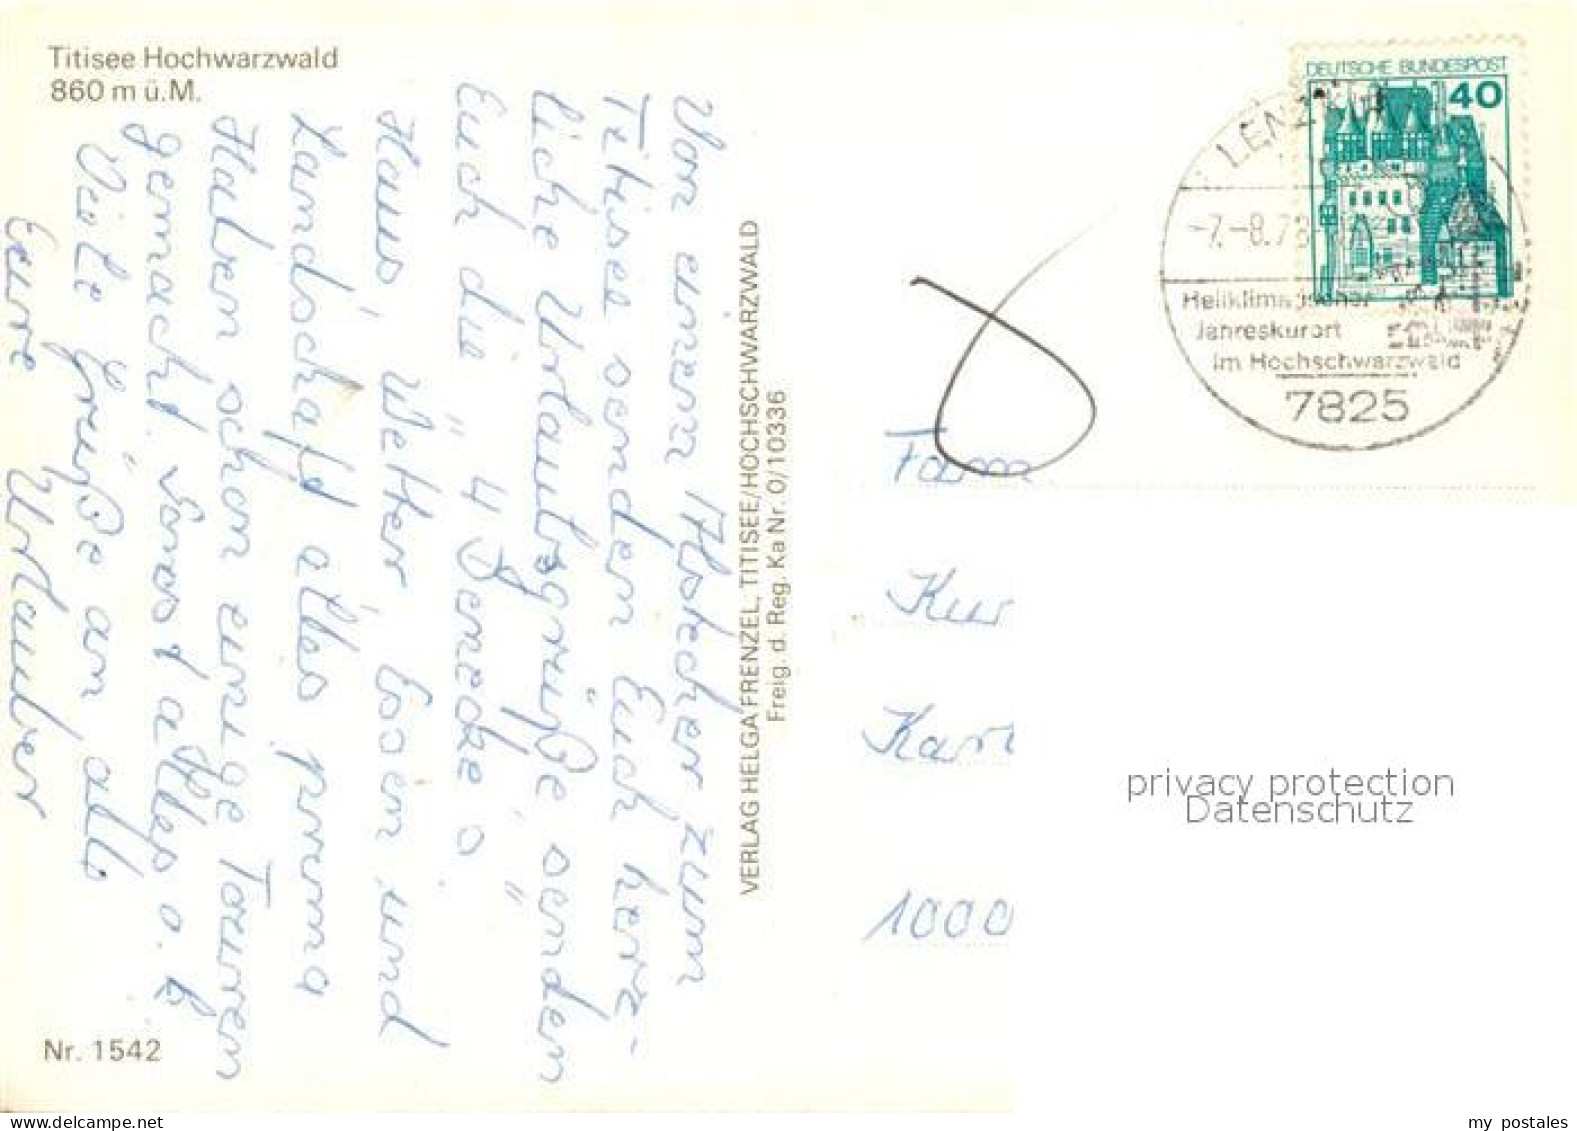 Titisee Hochwarzwald
860 m ü.M.
Von einem Abstecher zum
Titisee senden Euch herz-
liche Urlaubsgrüße senden
Euch die "4 Denecke's"
Haus, Wetter, Essen und
Landschaft alles prima
Haben schon einige Touren
gemacht. Sonst alles o.k.
Viele Grüße an alle
Eure Urlauber
Nr. 1542
VERLAG HELGA FRENZEL, TITISEE/HOCHSCHWARZWALD
Freig. d. Reg. Ka Nr. 0/10336
DEUTSCHE BUNDESPOST
40
LENZ
-7.-8.78
Heilklimatischer
Jahreskurort
im Hochschwarzwald
7825
Kur
1000
privacy protection
Datenschutz
my postales